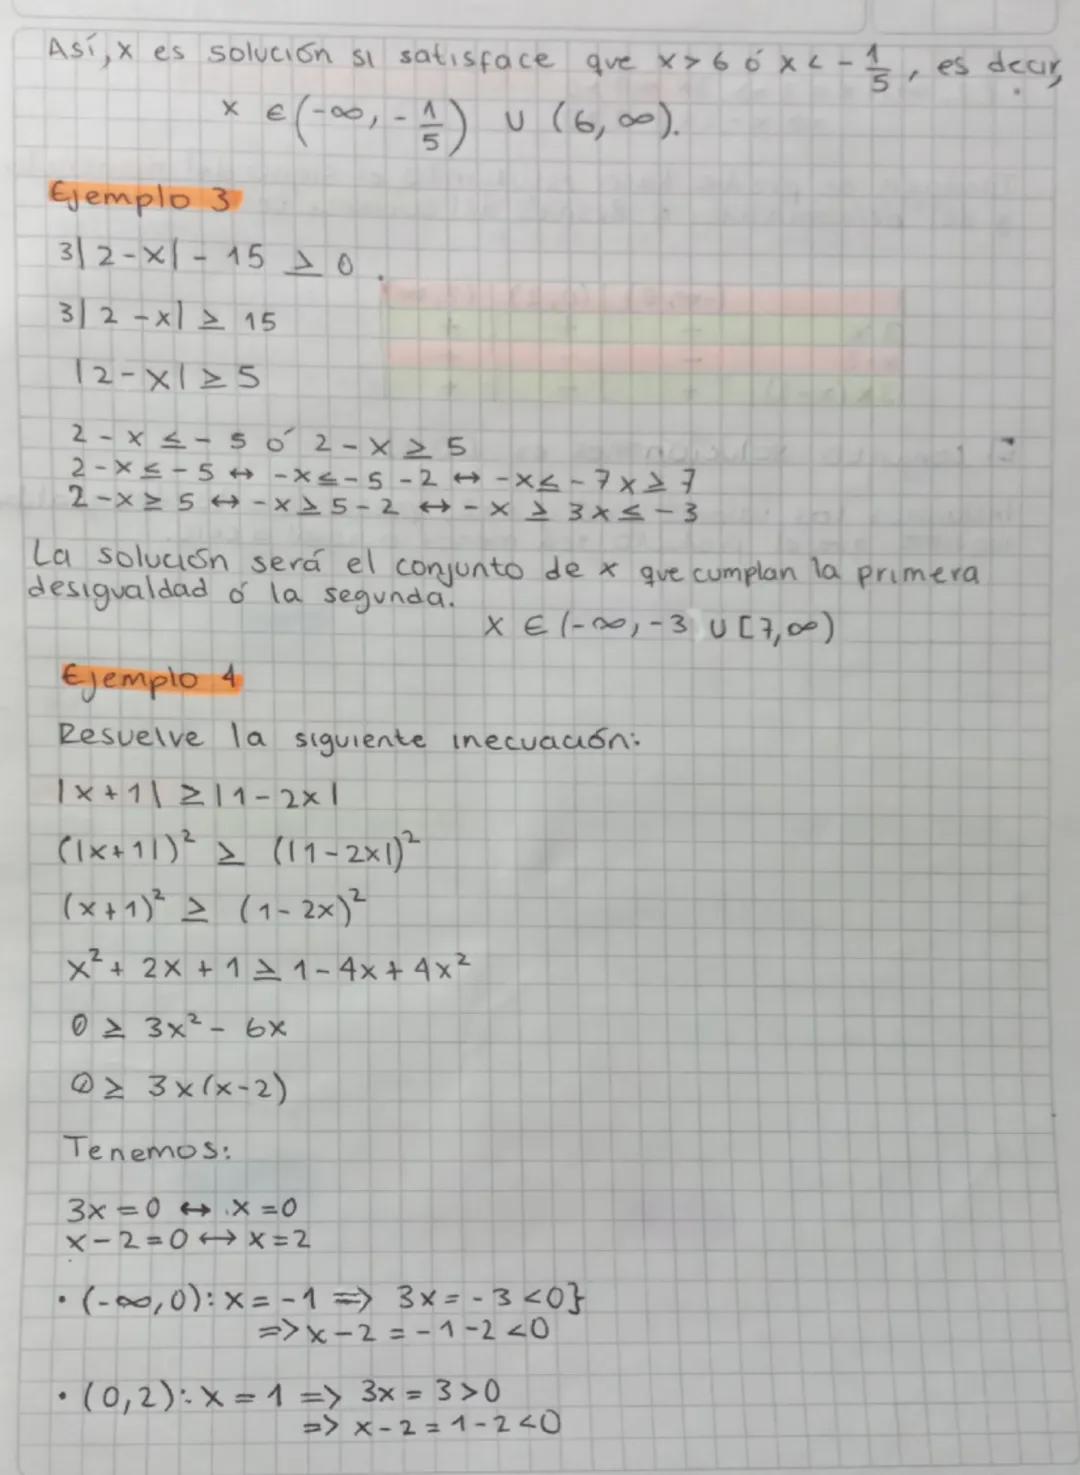 Así, x es solución si satisface que x > 6 ó x < - 1/5, es decir,
x ∈ (-∞, - 1/5) ∪ (6, ∞).
Ejemplo 3
3|2-x| - 15 ≥ 0.
3|2-x| ≥ 15
|2-x| ≥ 5
2-x ≤ -5 ó 2-x ≥ 5
2-x ≤ -5 ↔ -x ≤ -5-2 ↔ -x ≤ -7 x ≥ 7
2-x ≥ 5 ↔ -x ≥ 5-2 ↔ -x ≥ 3 x ≤ -3
La solución será el conjunto de x que cumplan la primera
desigualdad ó la segunda.
x ∈ (-∞, -3 ∪ [7, ∞)
Ejemplo 4
Resuelve la siguiente inecuación:
|x+1| ≥ |1-2x|
(|x+1|)² ≥ (|1-2x|)²
(x+1)² ≥ (1-2x)²
x² + 2x + 1 ≥ 1 - 4x + 4x²
0 ≥ 3x² - 6x
0 ≥ 3x(x-2)
Tenemos:
3x = 0 ↔ x = 0
x-2 = 0 ↔ x = 2
• (-∞, 0): x = -1 => 3x = -3 < 0}
=> x-2 = -1-2 < 0
• (0, 2): x = 1 => 3x = 3 > 0
=> x-2 = 1-2 < 0